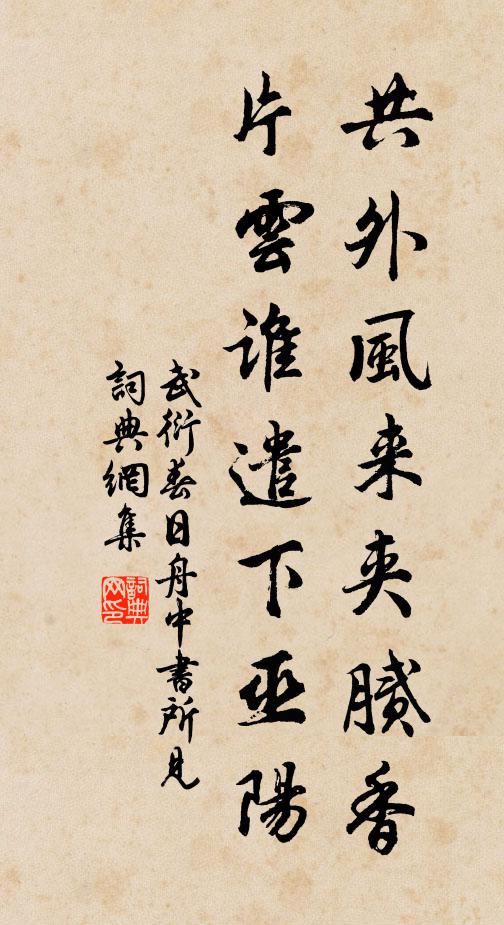 共外風来夾膩香
片雲誰遣下巫陽
武衍春日舟中書所見
詞典網集
詞典网印